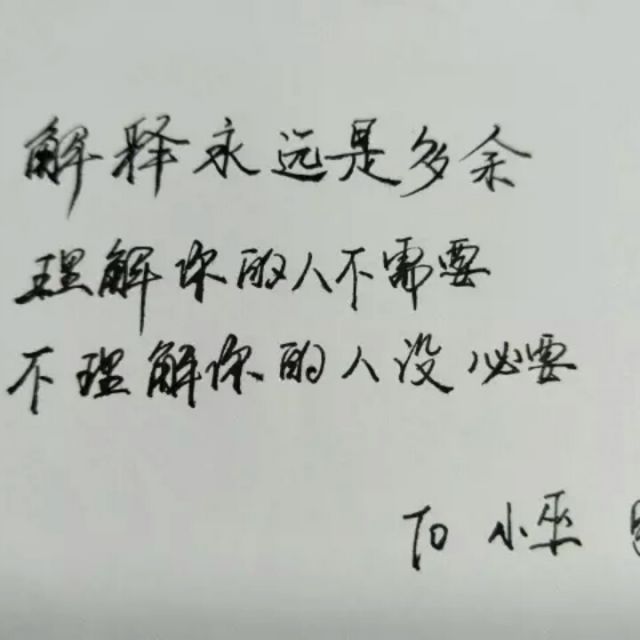 解释永远是多余
理解你的人不需要
不理解你的人没必要
TO 小巫